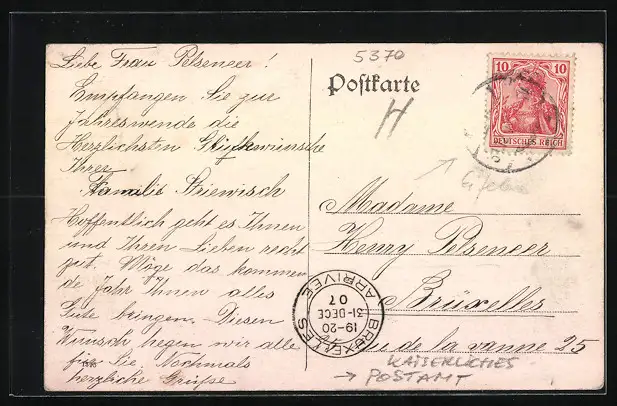 Liebe Frau Pelseneer!
Empfangen Sie zur
Jahreswende die
Herzlichsten Glückwünsche
Ihrer
Familie Striewisch
Hoffentlich geht es Ihnen
und Ihren Lieben recht
gut. Möge das kommen
de Jahr Ihnen alles
Gute bringen. Diesen
Wunsch hegen wir alle
für Sie. Nochmals
herzliche Grüße
5370
Postkarte
H
10 10
DEUTSCHES REICH
Madame
Henry Pelseneer
Bruxelles
Rue de la vanne 25
BRUXELLES
19-20
31-DECE
07
ARRIVEE
KAISERLICHES
→ POSTAMT